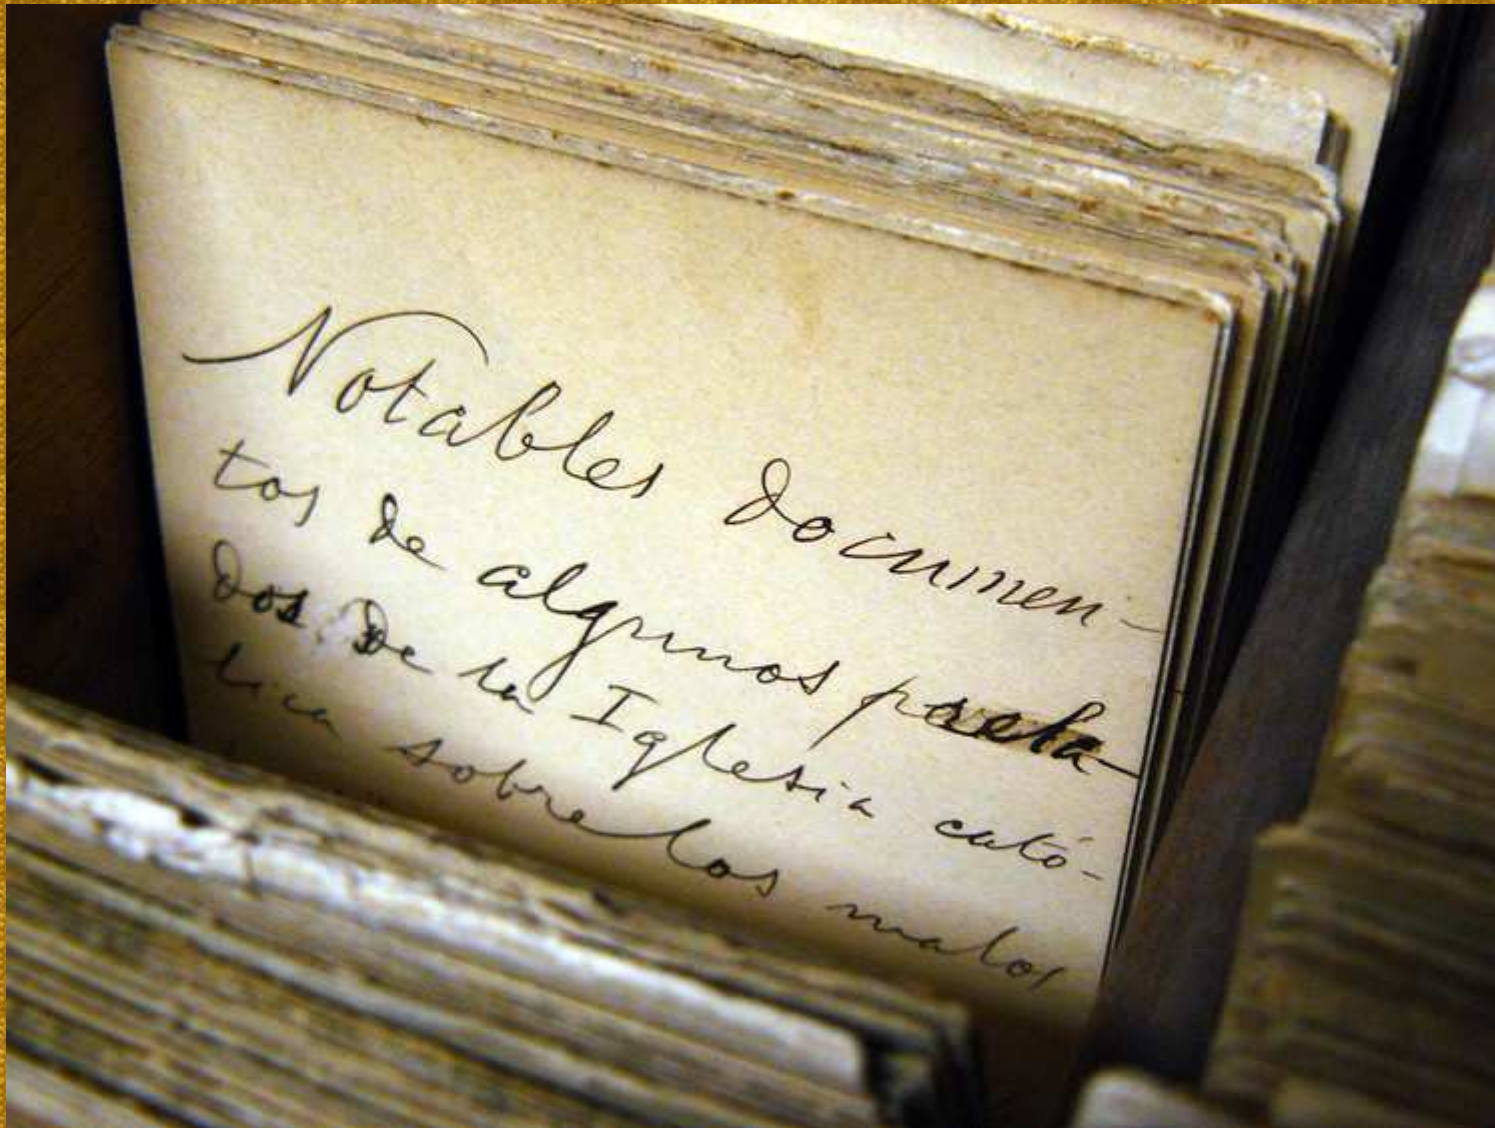 Notables documen-
tos de algunos prela-
dos de la Iglesia cató-
lica sobre los malos